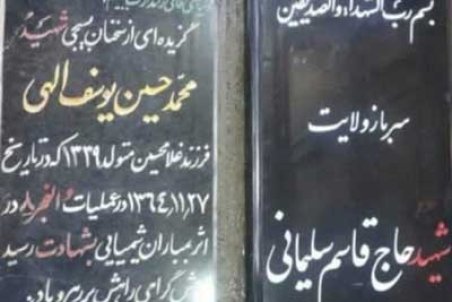 بسم رب الشهداء والصدیقین
سرباز ولایت
شهید حاج قاسم سلیمانی
گزیده ای از سخنان بسیجی شهید
محمد حسین یوسف الهی
فرزند غلامحسین متولد ۱۳۳۹ که در تاریخ
۱۳۶۴٫۱۱٫۲۷ در عملیات والفجر ۸ در
اثر بمباران شیمیایی بشهادت رسید
گرامی راهش پر رهرو باد.